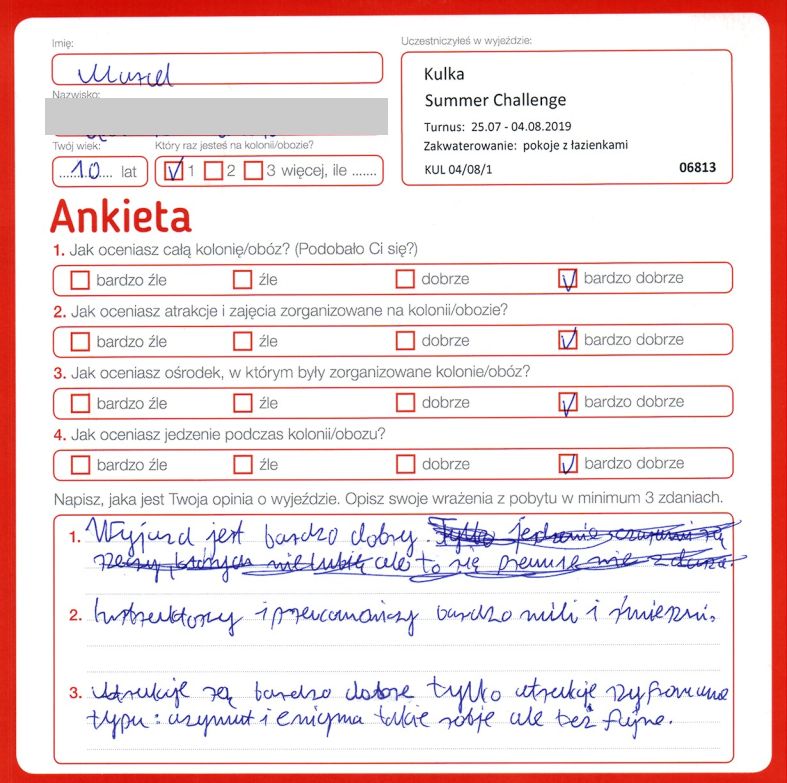 Imię:
Marcel
Uczestniczyłeś w wyjeździe:
Kulka
Summer Challenge
Turnus: 25.07 - 04.08.2019
Zakwaterowanie: pokoje z łazienkami
KUL 04/08/1 06813
Nazwisko:
Twój wiek: Który raz jesteś na kolonii/obozie?
10 lat 1 2 3 więcej, ile .......
Ankieta
1. Jak oceniasz całą kolonię/obóz? (Podobało Ci się?)
bardzo źle źle dobrze bardzo dobrze
2. Jak oceniasz atrakcje i zajęcia zorganizowane na kolonii/obozie?
bardzo źle źle dobrze bardzo dobrze
3. Jak oceniasz ośrodek, w którym były zorganizowane kolonie/obóz?
bardzo źle źle dobrze bardzo dobrze
4. Jak oceniasz jedzenie podczas kolonii/obozu?
bardzo źle źle dobrze bardzo dobrze
Napisz, jaka jest Twoja opinia o wyjeździe. Opisz swoje wrażenia z pobytu w minimum 3 zdaniach.
1. Wyjazd jest bardzo dobry. Tylko jedzenie czasami są
rzeczy których nie lubię ale to się nie
2. Instruktorzy i bardzo mili i śmieszni.
3. Atrakcje są bardzo dobre tylko atrakcje szyfrowane
typu: azymut i enigma takie sobie ale też fajne.